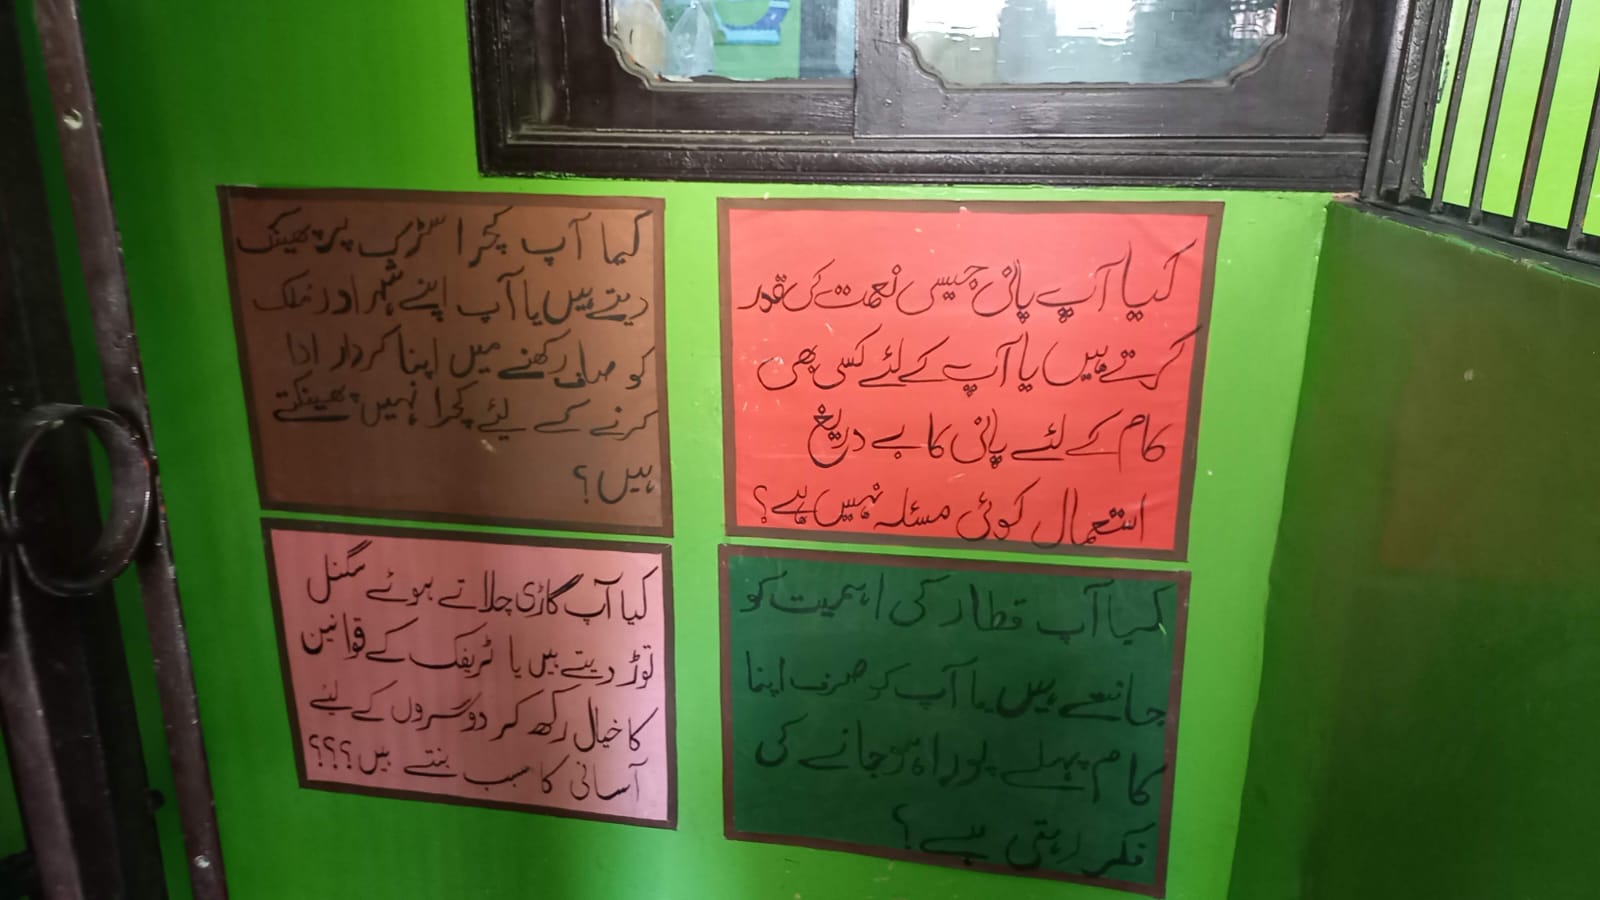 کیا آپ پانی جیسی نعمت کی قدر
کرتے ہیں یا آپ کے لئے کسی بھی
کام کے لئے پانی کا بے دریغ
استعمال کوئی مسئلہ نہیں ہے؟
کیا آپ کچرا سڑک پر پھینک
دیتے ہیں یا آپ اپنے شہر اور ملک
کو صاف رکھنے میں اپنا کردار ادا
کرنے کے لیئے کچرا نہیں پھینکتے
ہیں؟
کیا آپ قطار کی اہمیت کو
جانتے ہیں یا آپ کو صرف اپنا
کام پہلے پورا ہو جانے کی
فکر رہتی ہے؟
کیا آپ گاڑی چلاتے ہوئے سگنل
توڑ دیتے ہیں یا ٹریفک کے قوانین
کا خیال رکھ کر دوسروں کے لیئے
آسانی کا سبب بنتے ہیں؟؟؟